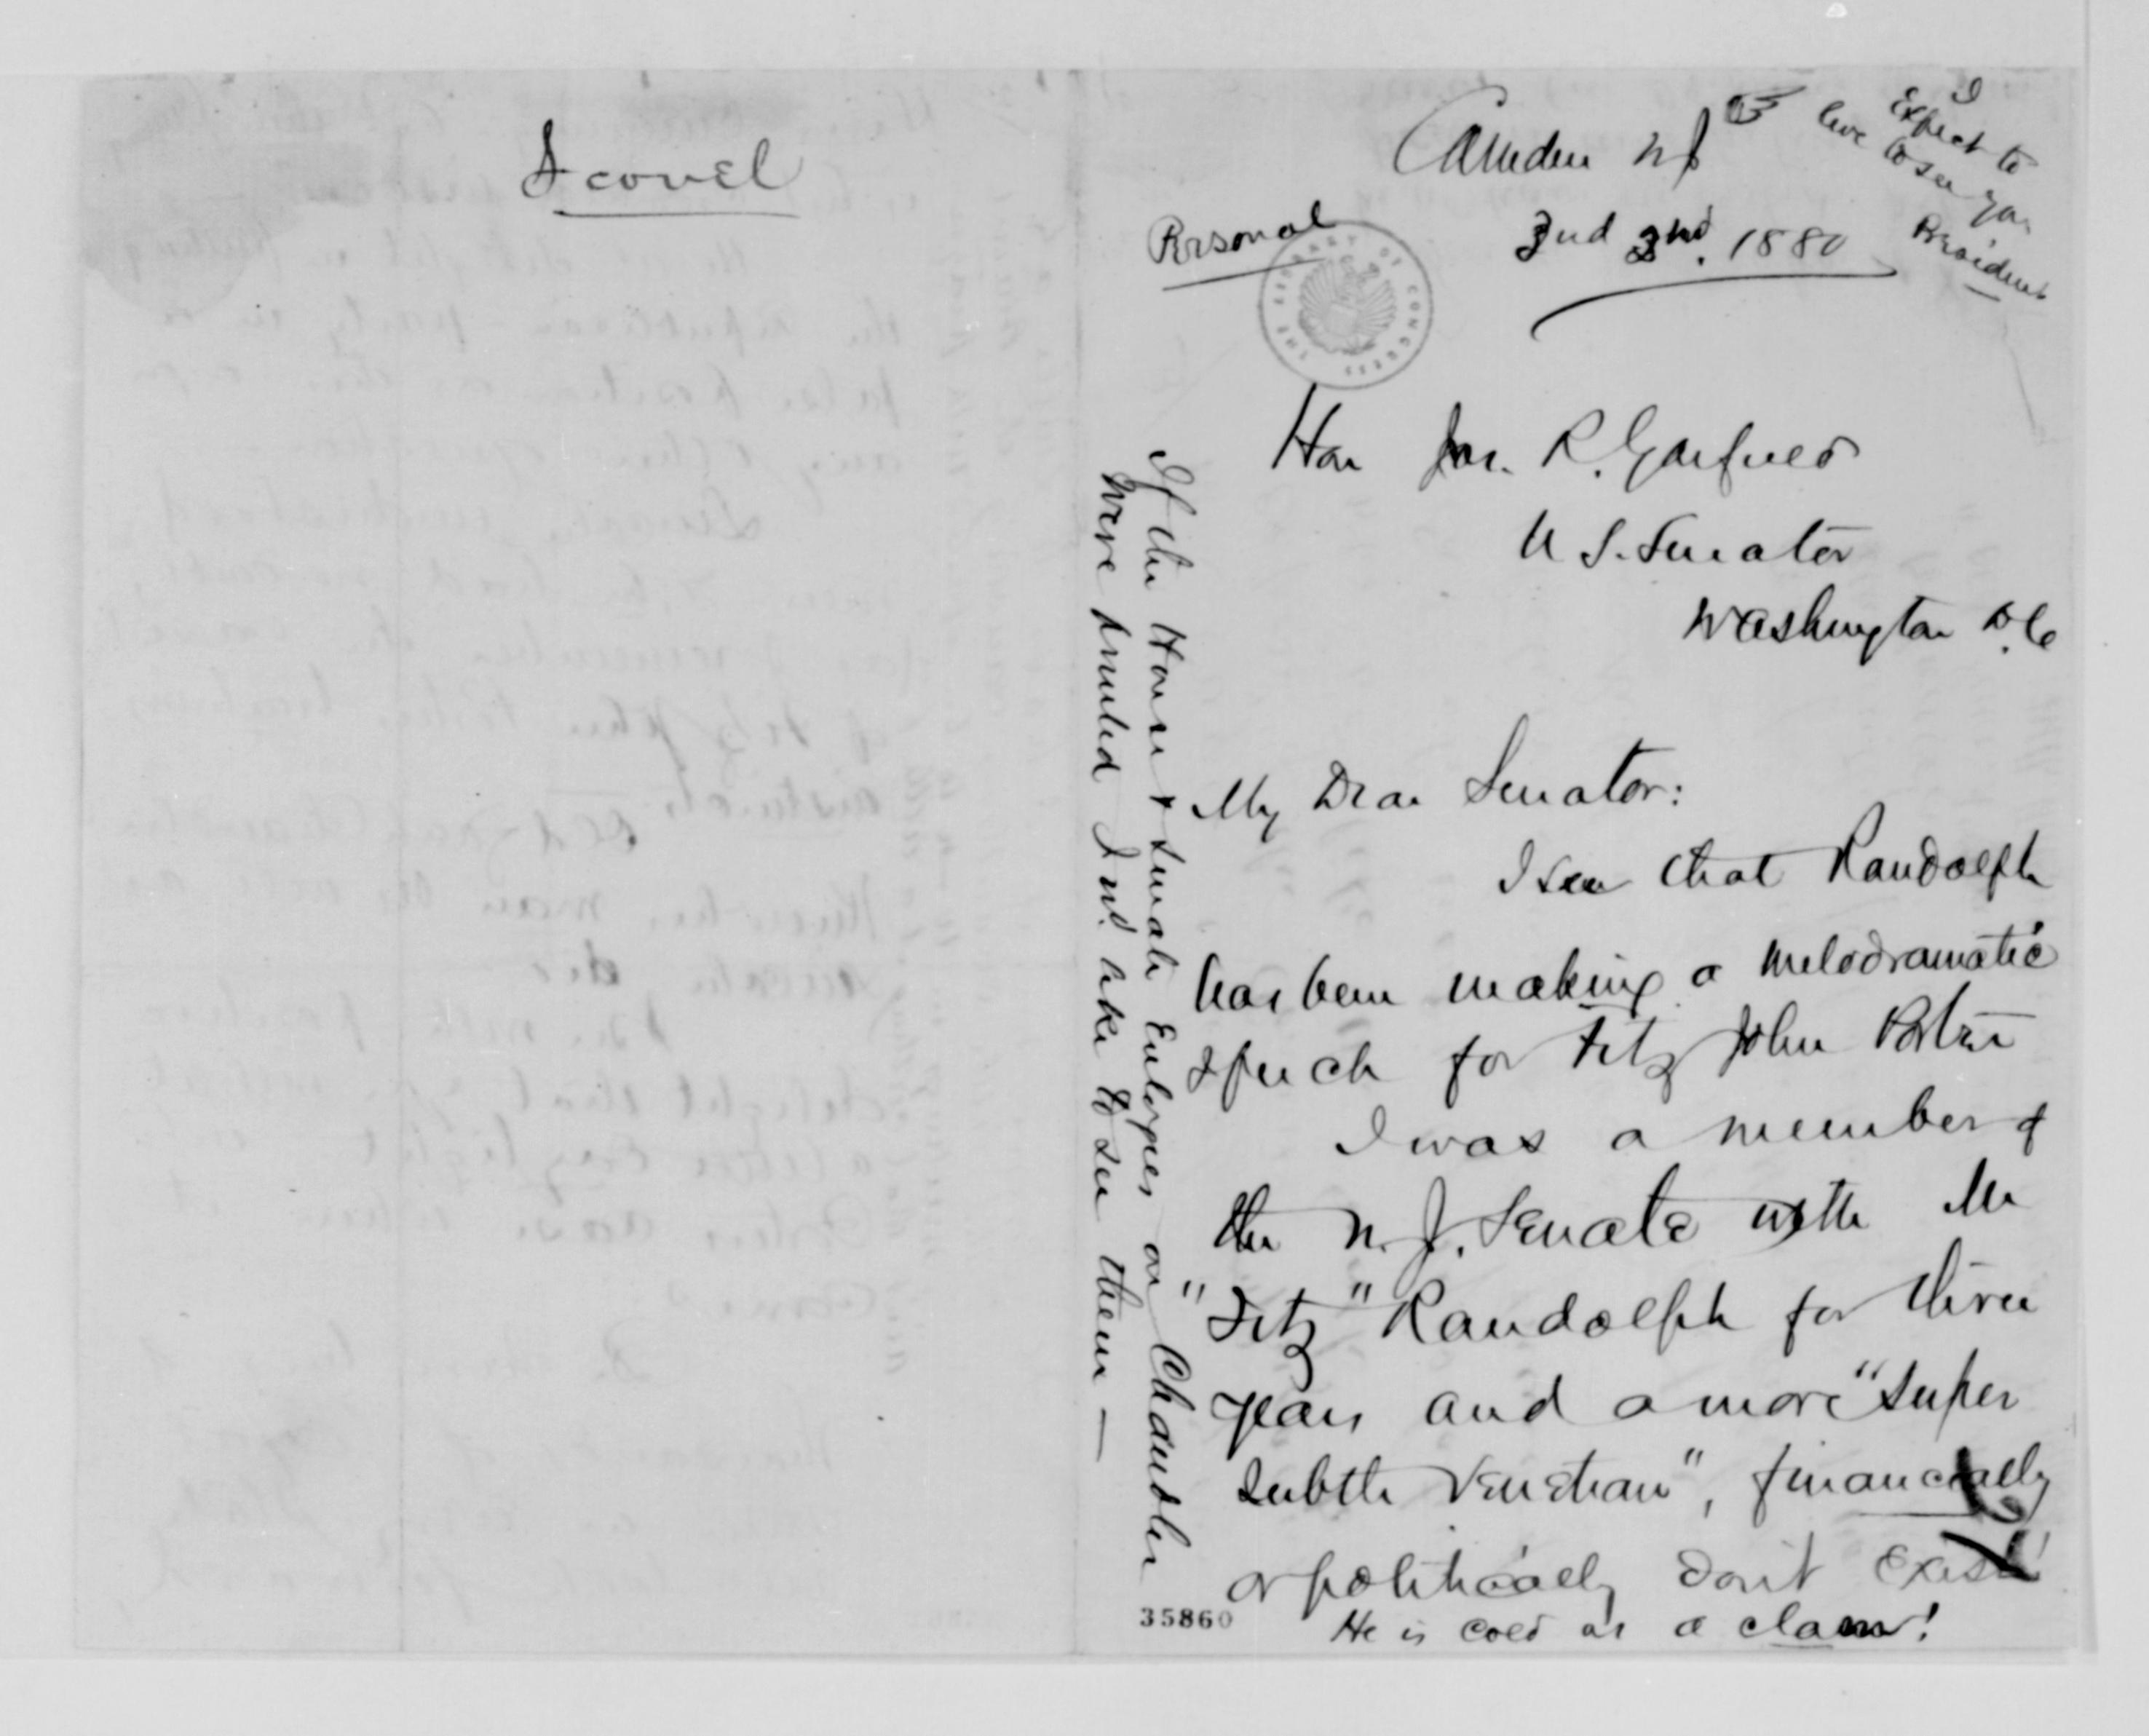 Scovel
Camden NJ
I
Expect to
live to see you
President
Personal
2nd. 1880
THE LIBRARY OF CONGRESS
Hon Jas. R. Garfield
U S. Senator
Washington D.C
My Dear Senator:
I see that Randolph
has been making a melodramatic
speech for Fitz John Porter
I was a member of
the N. J. Senate with Mr
"Fitz" Randolph for three
years and a more "super
subtle Venetian", financially
or politically don't exist!
He is cold as a clam!
35860
If the House & Senate Eulogies on Chandler
were printed I wd. like to see them —